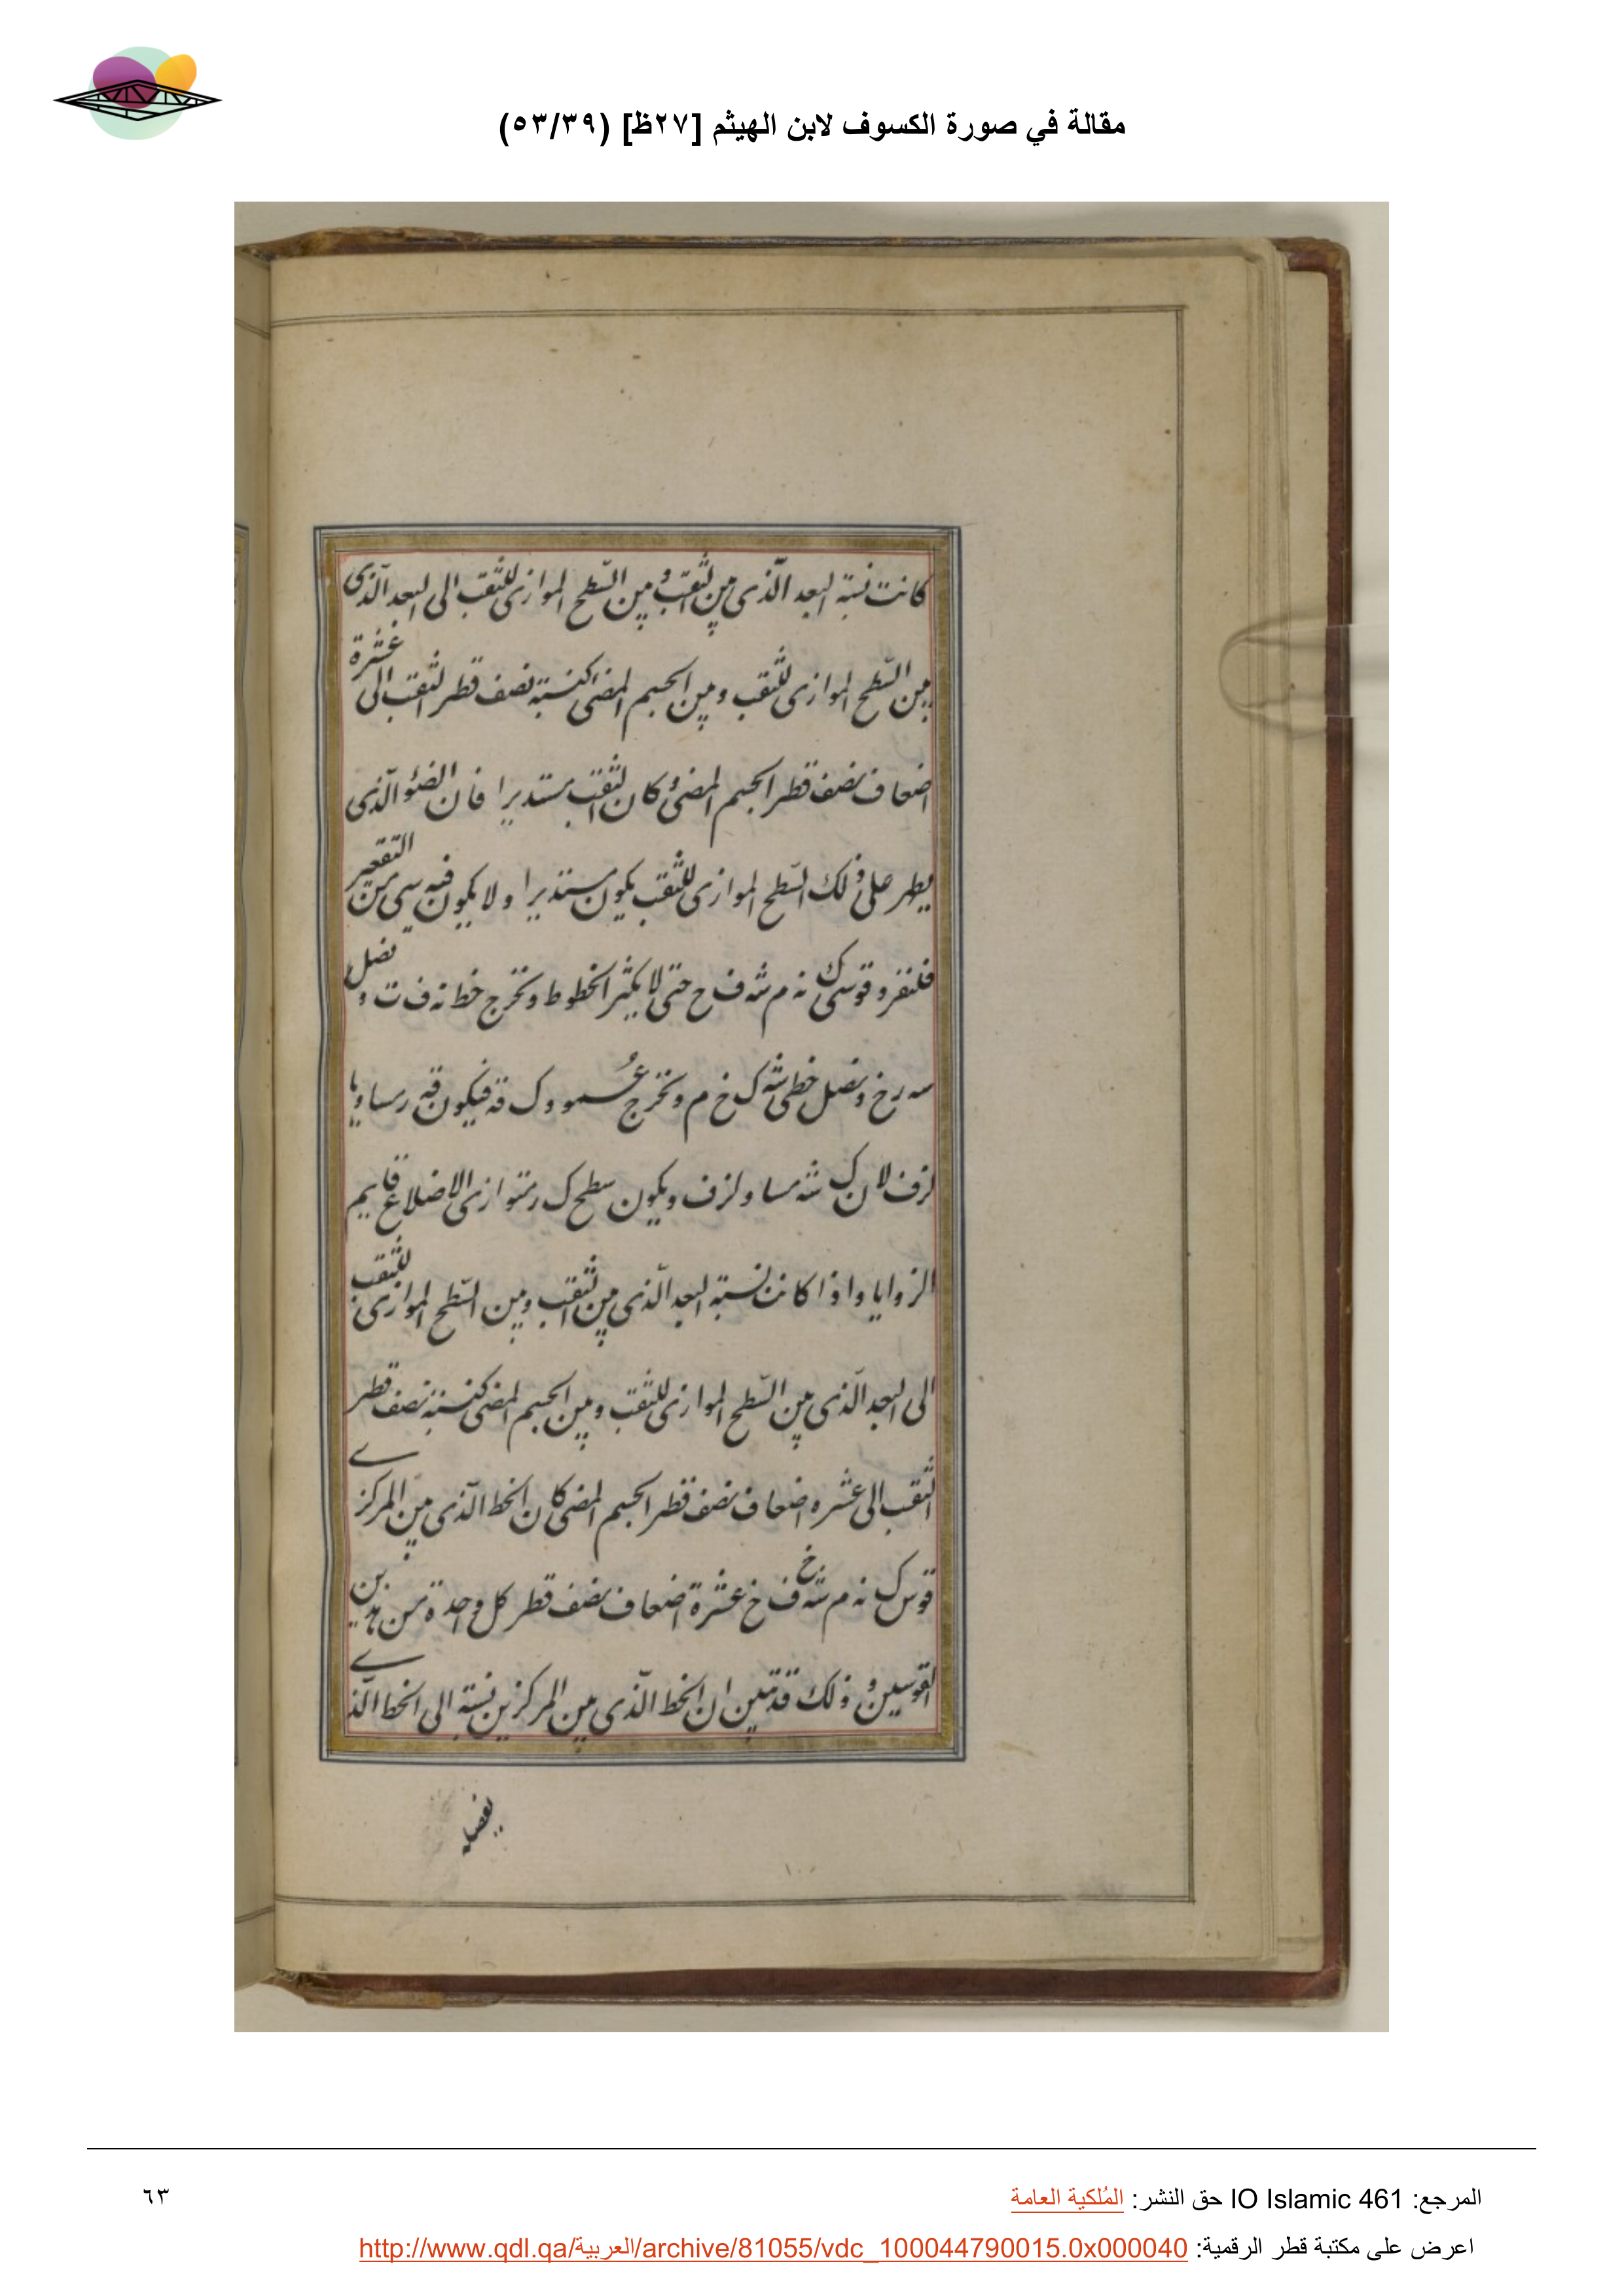 مقالة في صورة الكسوف لابن الهيثم [٢٧ظ] (٥٣/٣٩)
كانت نسبة البعد الّذي بين الثقب وبين السّطح الموازي للثقب الى البعد الّذي
بين السّطح الموازي للثقب وبين الجسم المضئ كنسبة نصف قطر الثقب الى عشرة
اضعاف نصف قطر الجسم المضئ وكان الثقب مستديرا فان الضوء الّذي
يظهر على ذلك السّطح الموازي للثقب يكون مستديرا ولا يكون فيه شي من التقعير
فلنفرد قوسي ك نه م شه ف خ حتى لا يكثر الخطوط ونخرج خط نه ف ت ونصل
سه ر خ ونصل خطي شه ك خ م ونخرج عمود ك قه فيكون قه ر مساويا
لز ف لان ك شه مساو لز ف ويكون سطح ك ر متوازي الاضلاع قايم
الزوايا واذا كانت نسبة البعد الّذي بين الثقب وبين السّطح الموازي للثقب
الى البعد الّذي بين السّطح الموازي للثقب وبين الجسم المضئ كنسبة نصف قطر
الثقب الى عشره اضعاف نصف قطر الجسم المضئ كان الخط الّذي بين المركزي
قوس ك نه م شه ف خ عشرة اضعاف نصف قطر كل واحدة من هذين
القوسين وذلك قد تبين ان الخط الّذي بين المركزين نسبته الى الخط الّذي
يفصله
المرجع: IO Islamic 461 حق النشر: المُلكية العامة
٦٣
اعرض على مكتبة قطر الرقمية: http://www.qdl.qa/العربية/archive/81055/vdc_100044790015.0x000040